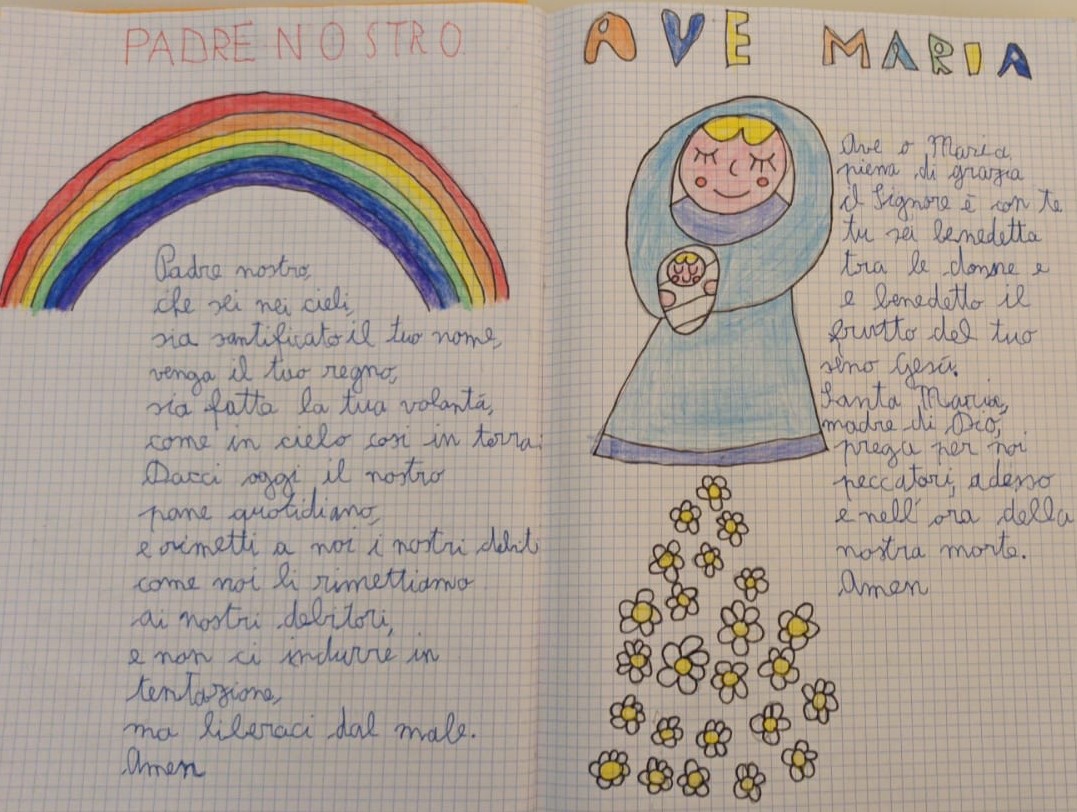 PADRE NOSTRO
Padre nostro,
che sei nei cieli,
sia santificato il tuo nome,
venga il tuo regno,
sia fatta la tua volantà,
come in cielo così in terra.
Dacci oggi il nostro
pane quotidiano,
e rimetti a noi i nostri debiti
come noi li rimettiamo
ai nostri debitori,
e non ci indurre in
tentazione,
ma liberaci dal male.
Amen
AVE MARIA
Ave o Maria,
piena di grazia
il Signore è con te
tu sei benedetta
tra le donne e
e benedetto il
frutto del tuo
seno Gesù.
Santa Maria,
madre di Dio,
prega per noi
peccatori, adesso
e nell'ora della
nostra morte.
Amen